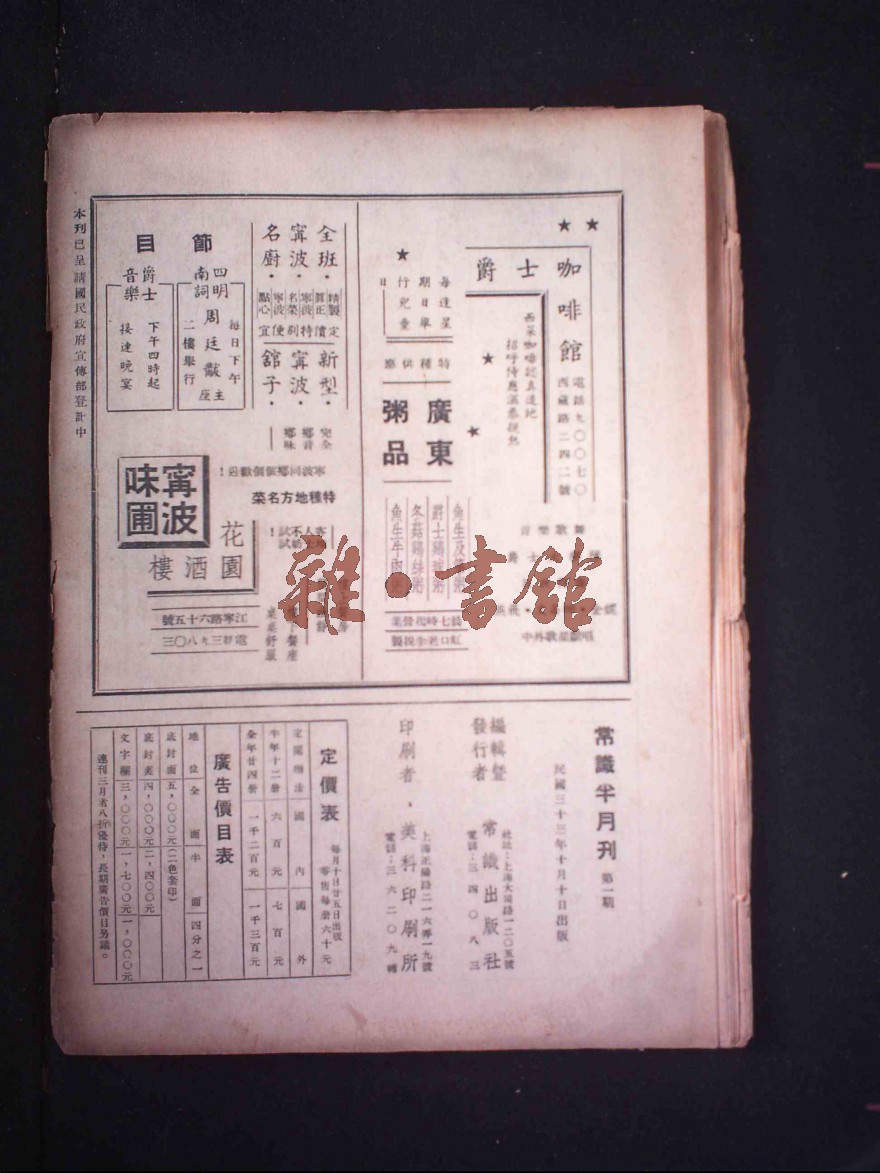 爵士咖啡館
西藏路二四二號
電話九〇〇七〇
每逢星
期日舉
行兒童
特種供應
廣東
粥品
虹口老李祝製
中外歌星歌唱
全班・
寧波・
名廚・
精製
真正
寧波
名菜
寧波
點心
定價特別便宜
新型・
寧波・
館子・
完全
鄉音
鄉味
寧波同鄉個個歡迎！
特種地方名菜
寧波
味圃
花園酒樓
江寧路六十五號
電話三九八〇三
節目
每日下午
四明
南詞
二樓舉行
爵士
音樂
下午四時起
接連晚宴
本刊已呈請國民政府宣傳部登記中
雜・書館
常識半月刊 第一期
民國三十三年十月十日出版
編輯暨
發行者
常識出版社
電話：三四〇八三
印刷者・美科印刷所
電話：三六二〇九轉
定價表
每月十日廿五日出版
零售每册六十元
定閱辦法 國內 國外
半年十二册 六百元 七百元
全年廿四册 一千二百元 一千三百元
廣告價目表
地位 全面 半面 四分之一
底封面 五，〇〇〇元（二色套印）
底封裏 四，〇〇〇元 二，四〇〇元
文字欄 三，〇〇〇元 一，七〇〇元 一，〇〇〇元
連刊三月者八折優待，長期廣告價目另議。